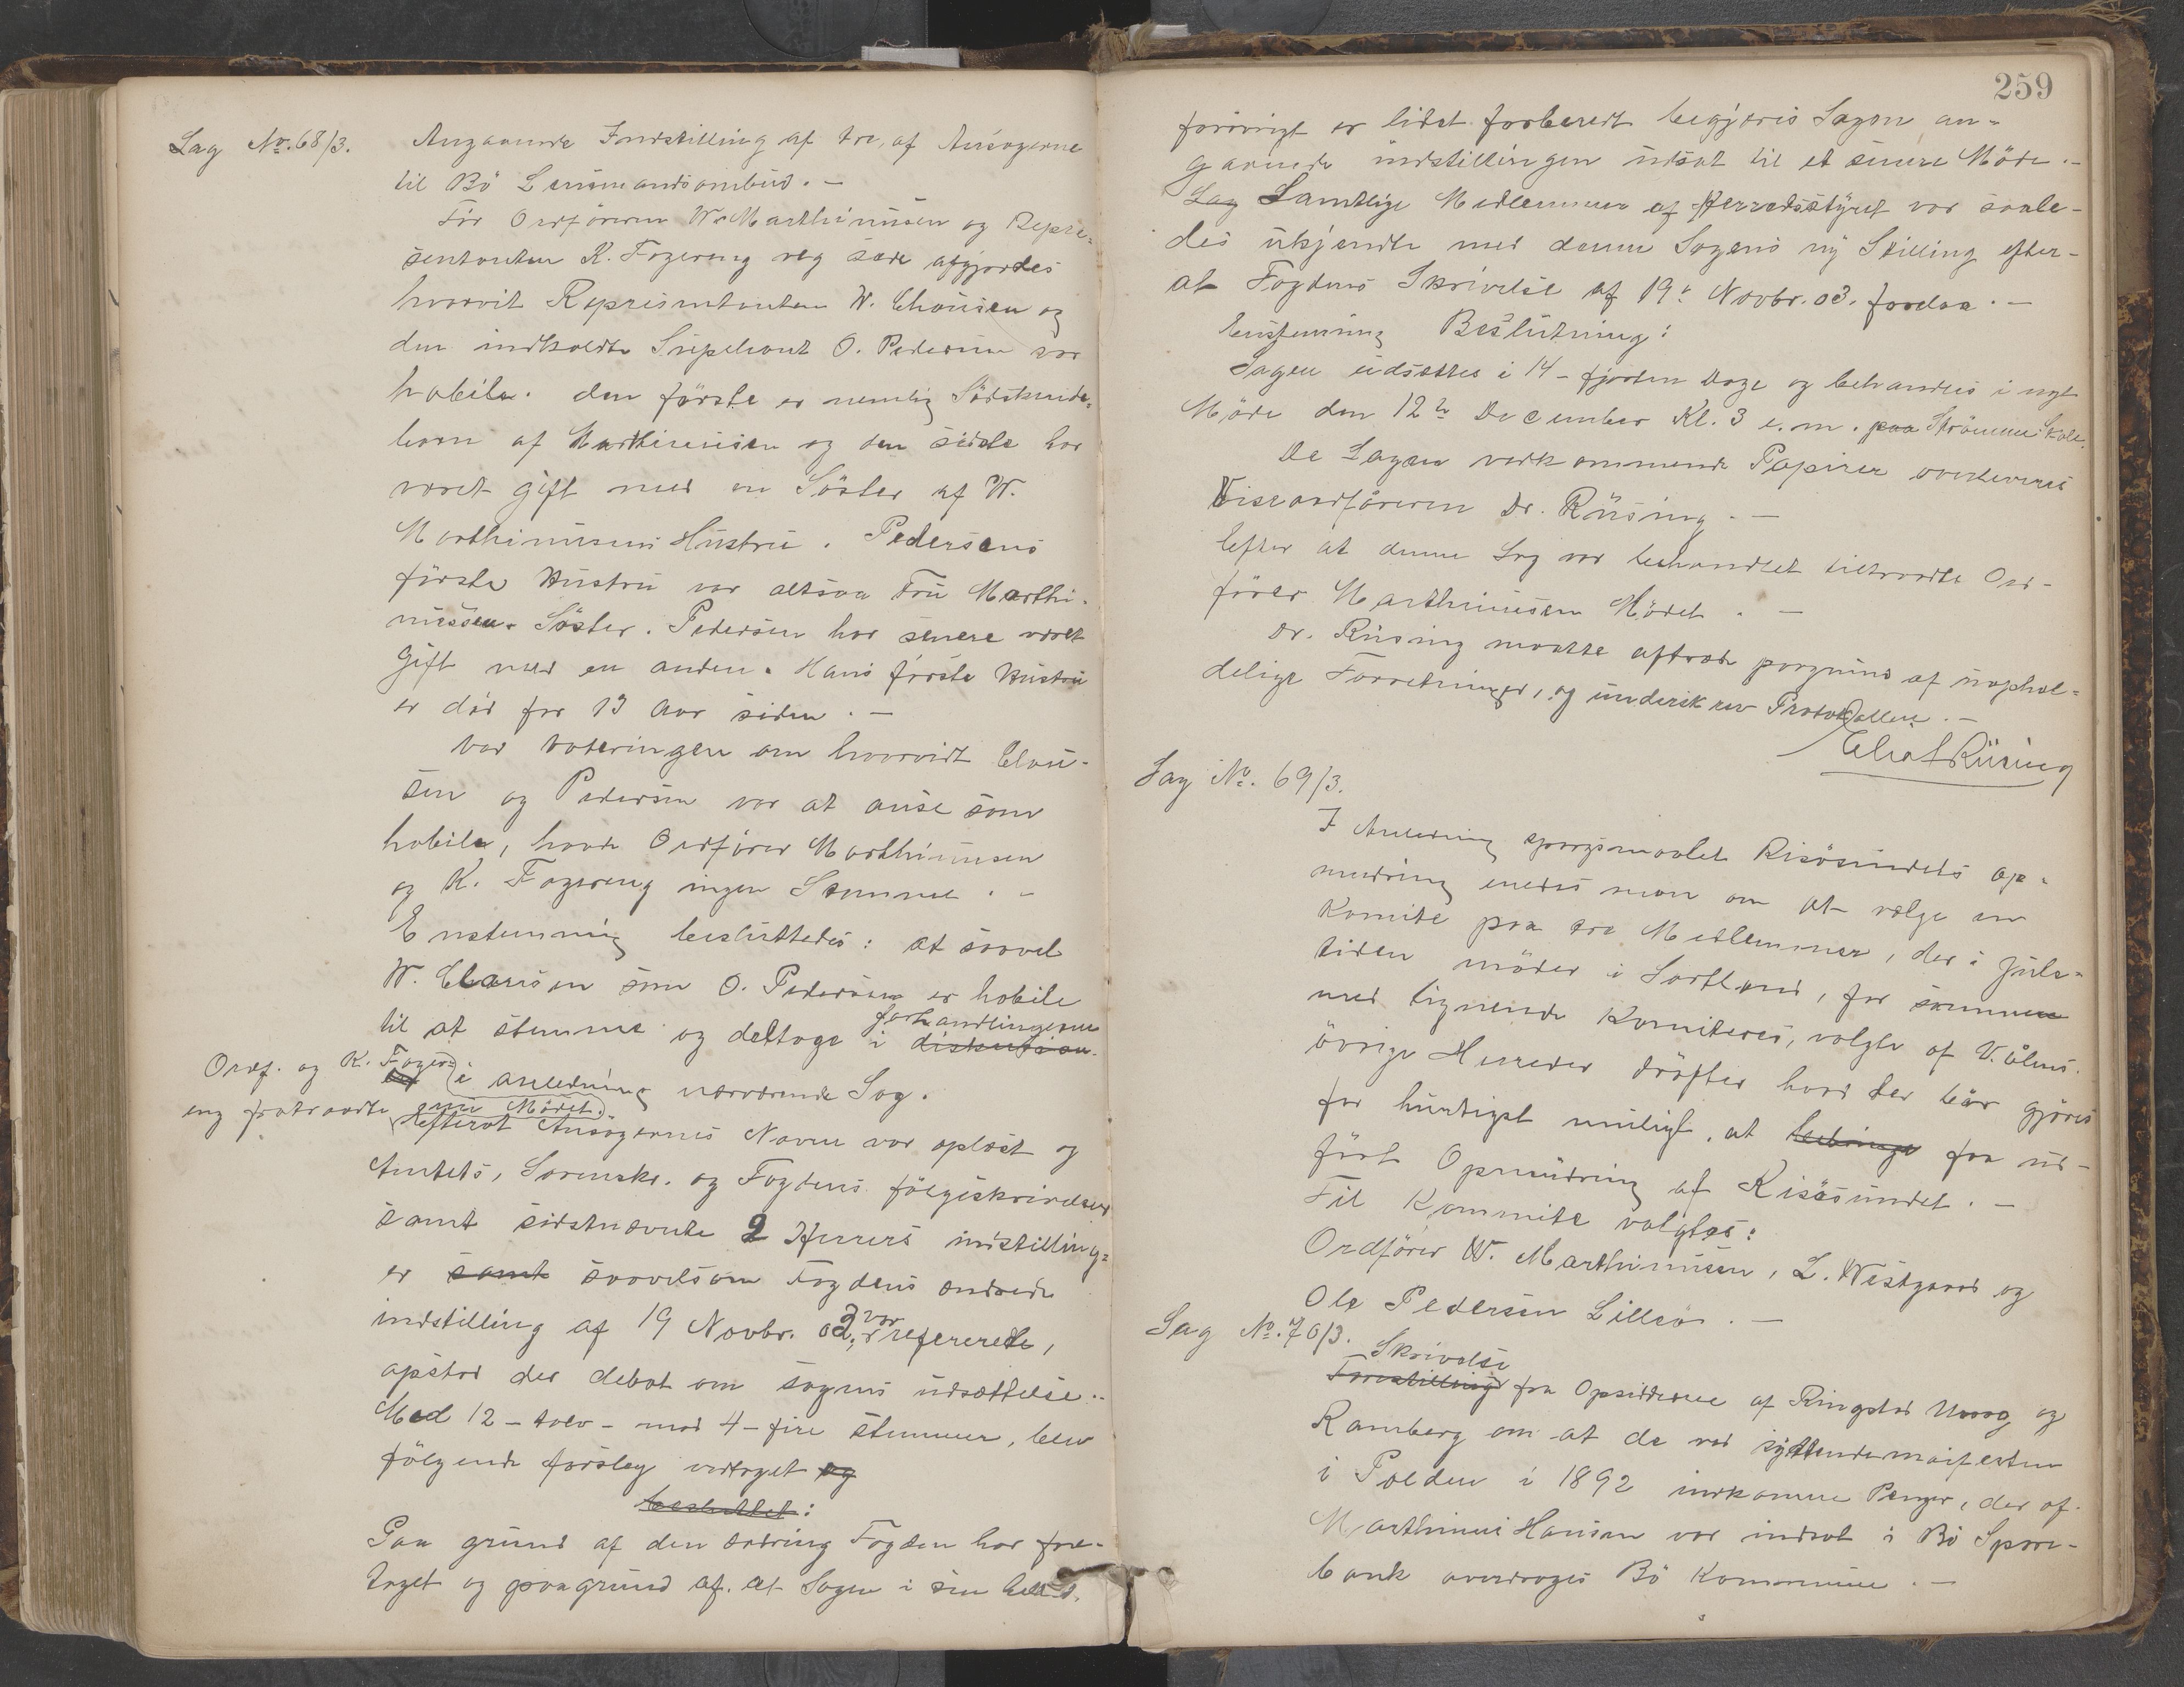 Sag No. 68/3. Angaaende Indstilling af tre af Ansøgerne
til Bö Lensmandsombud. —
Før Ordföreren W. Marthinussen og Repre-
sentanten K. Fagereng veg sæde afgjordes
hvorvit Representanten W. Clausen og
den indkaldte Supleant O. Pedersen var
habile. den förste er nemlig Södskende-
barn af Marthinussen og den sidste har
været gift med en Söster af W.
Marthinussens Hustru. Pedersens
förste Hustru var altsaa Fru Marthi-
nussen. Söster. Pedersen har senere været
gift med en anden. Hans förste Hustru
er död for 13 Aar siden. —
Ved Voteringen om hvorvidt Clau-
sen og Pedersen var at anse som
habile, havde Ordförer Marthinussen
og K. Fagereng ingen Stemme. —
Enstemmig besluttedes: at saavel
W. Clausen som O. Pedersen er habile
forhandlingerne
til at stemme og deltage i diskusionen
Ordf. og K. Fager- i anledning nærværende Sag.
eng fratraadte nu Mödet.
Efterat Ansögernes Navne var oplæst og
Amtets, Sorenskr. og Fogdens fölgeskrivelser
samt sidstnævnte 2 Herrers indstilling-
er samt saavelsom Fogdens ændrede
indstilling af 19 Novbr. 03 var refererede,
opstod der debat om sagens udsættelse. -
Med 12 - tolv - mod 4 - fire stemmer, blev
fölgende forslag vedtaget og
besluttet:
Paa grund af den ændring Fogden har fore-
taget og paagrund af. at Sagen i sin helhed.
259
forövrigt er lidet forberedt begjæres Sagen an-
gaaende indstillingen udsat til et senere Möde. -
Sag Samtlige Medlemmer af Herredsstyret var saale-
des ukjendte med denne Sagens ny Stilling efter-
at Fogdens Skrivelse af 19de Novbr. 03. forelaa. —
Enstemmig Beslutning:
Sagen udsættes i 14 - fjorten Dage og behandles i nyt
Möde den 12te December Kl. 3 e.m. paa Strömme Skole.
De Sagen vedkommende Papirer overleveres
Viseordföreren Dr. Rüsing. —
Efter at denne Sag var behandlet tiltraadte Ord-
förer Marthinussen Mödet. —
Dr. Rüsing maatte aftræde paagrund af uophol-
delige Forretninger, og underskrev Protokollen. —
Rüsing
Sag No. 69/3.
I Anledning spørgsmaalet Risösundets op-
mudring enedes man om at vælge en
Komite paa tre Medlemmer, der i Jule-
tiden möder i Sortland, for sammen
med lignende Komiteer, valgte af V.ålens
övrige Herreder dröfter hvad der bör gjöres
for hurtigst muligt, at bebringe faa ud-
fört Opmudring af Risösundet. —
Til Kommite valgtes:
Ordförer W. Marthinussen, L. Westgaard og
Ole Pedersen Lillevo. —
Sag No. 70/3. Skrivelse
Forestilling fra Opsidderne af Ringstad Uvaag og
Ramberg om at de ved syttendemaifesten
i Polden i 1892 indkomne Penger, der af
Marthinus Hansen var indsat i Bö Spare-
bank overdrages Bö Kommune. —